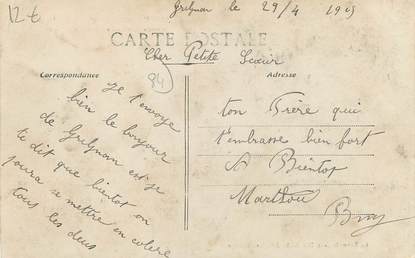 12€
Grignon le 29/4 1905
CARTE POSTALE
Cher Petite Sœur
Correspondance
Adresse
94
je t'envoye
bien le bonjour
de Grignon et je
te dit que bientot on
poura se mettre en colere
tous les deus
ton Frère qui
t'embrasse bien fort
A Bientot